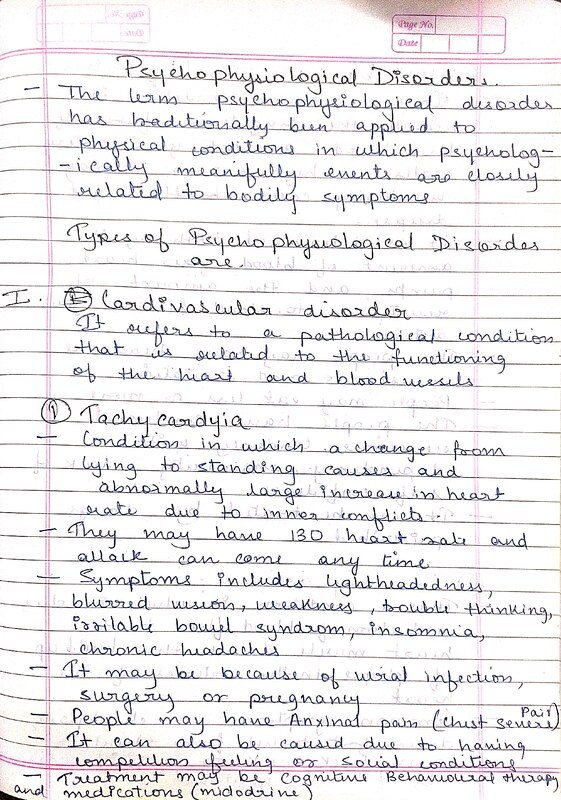 Page No.
Date
Psychophysiological Disorders.
- The term psychophysiological disorder
has traditionally been applied to
physical conditions in which psycholog-
-ically meanifully events are closely
related to bodily symptoms
Types of Psychophysiological Disordes
are.
I. Cardivascular disorder
It refers to a pathological condition
that is related to the functioning
of the heart and blood vessels
① Tachycardyia
- Condition in which a change from
lying to standing causes and
abnormally large increase in heart
rate due to inner conflicts.
- They may have 130 heart rate and
attack can come any time
- Symptoms includes lightheadedness,
blurred vision, weakness, trouble thinking,
irritable bowel syndrom, insomnia,
chronic headaches
- It may be because of viral infection,
surgery or pregnancy
- People may have Anxinal pain (chest severe Pain)
- It can also be caused due to having
competition feeling or social conditions
- Treatment may be Cognitive Behavioural therapy
and medications (midodrine)